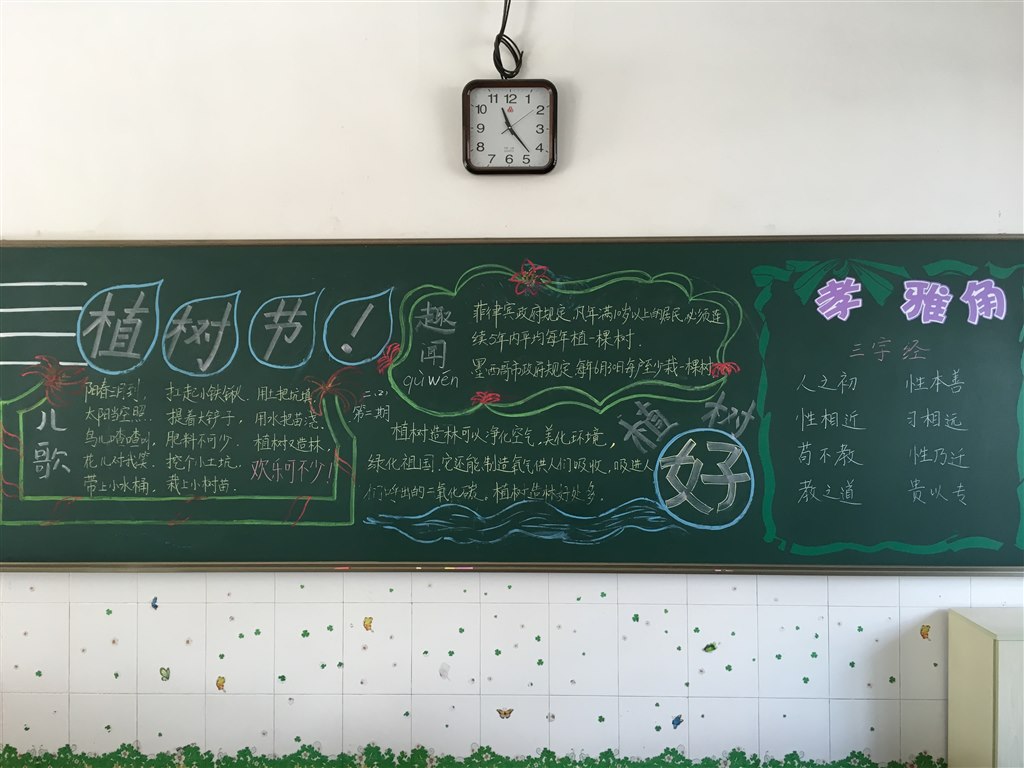 11 12 1
10 2
9 3
8 4
7 6 5
植树节！
儿歌
阳春三月到， 扛起小铁锹， 用土把坑填，
太阳当空照。 提着大铲子， 用水把苗浇。
鸟儿喳喳叫， 肥料不可少。 植树又造林，
花儿对我笑。 挖个小土坑， 欢乐可不少！
带上小水桶， 栽上小树苗。
趣闻
qù wén
菲律宾政府规定,凡年满10岁以上的居民,必须连
续5年内平均每年植一棵树.
墨西哥市政府规定,每年6月30日车产至少栽一棵树
二(2)
第二期
植树造林可以净化空气,美化环境,
绿化祖国,它还能制造氧气供人们吸收,吸进人
们呼出的二氧化碳。植树造林好处多.
植树
好
孝雅角
三字经
人之初 性本善
性相近 习相远
苟不教 性乃迁
教之道 贵以专